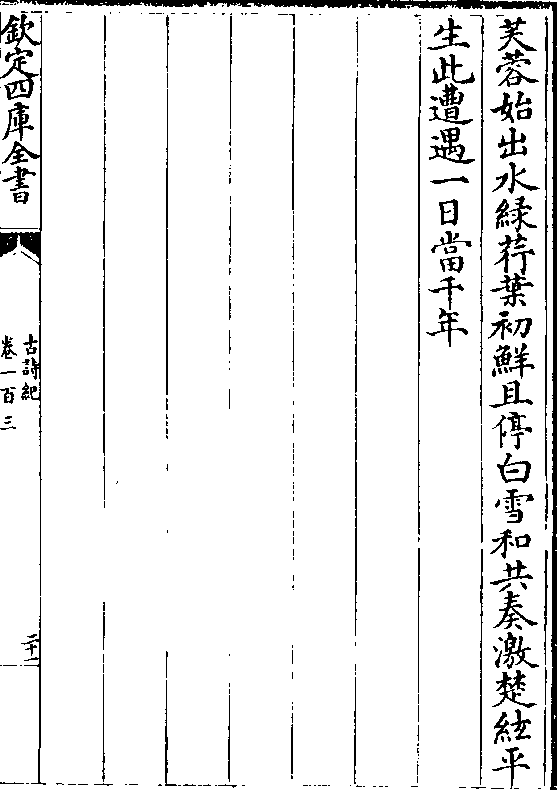 芙蓉始出水緑荇葉初鮮且停白雪和共奏激楚絃平
生此遭遇一日當千年
欽定四庫全書
古詩紀
卷一百三
二十二